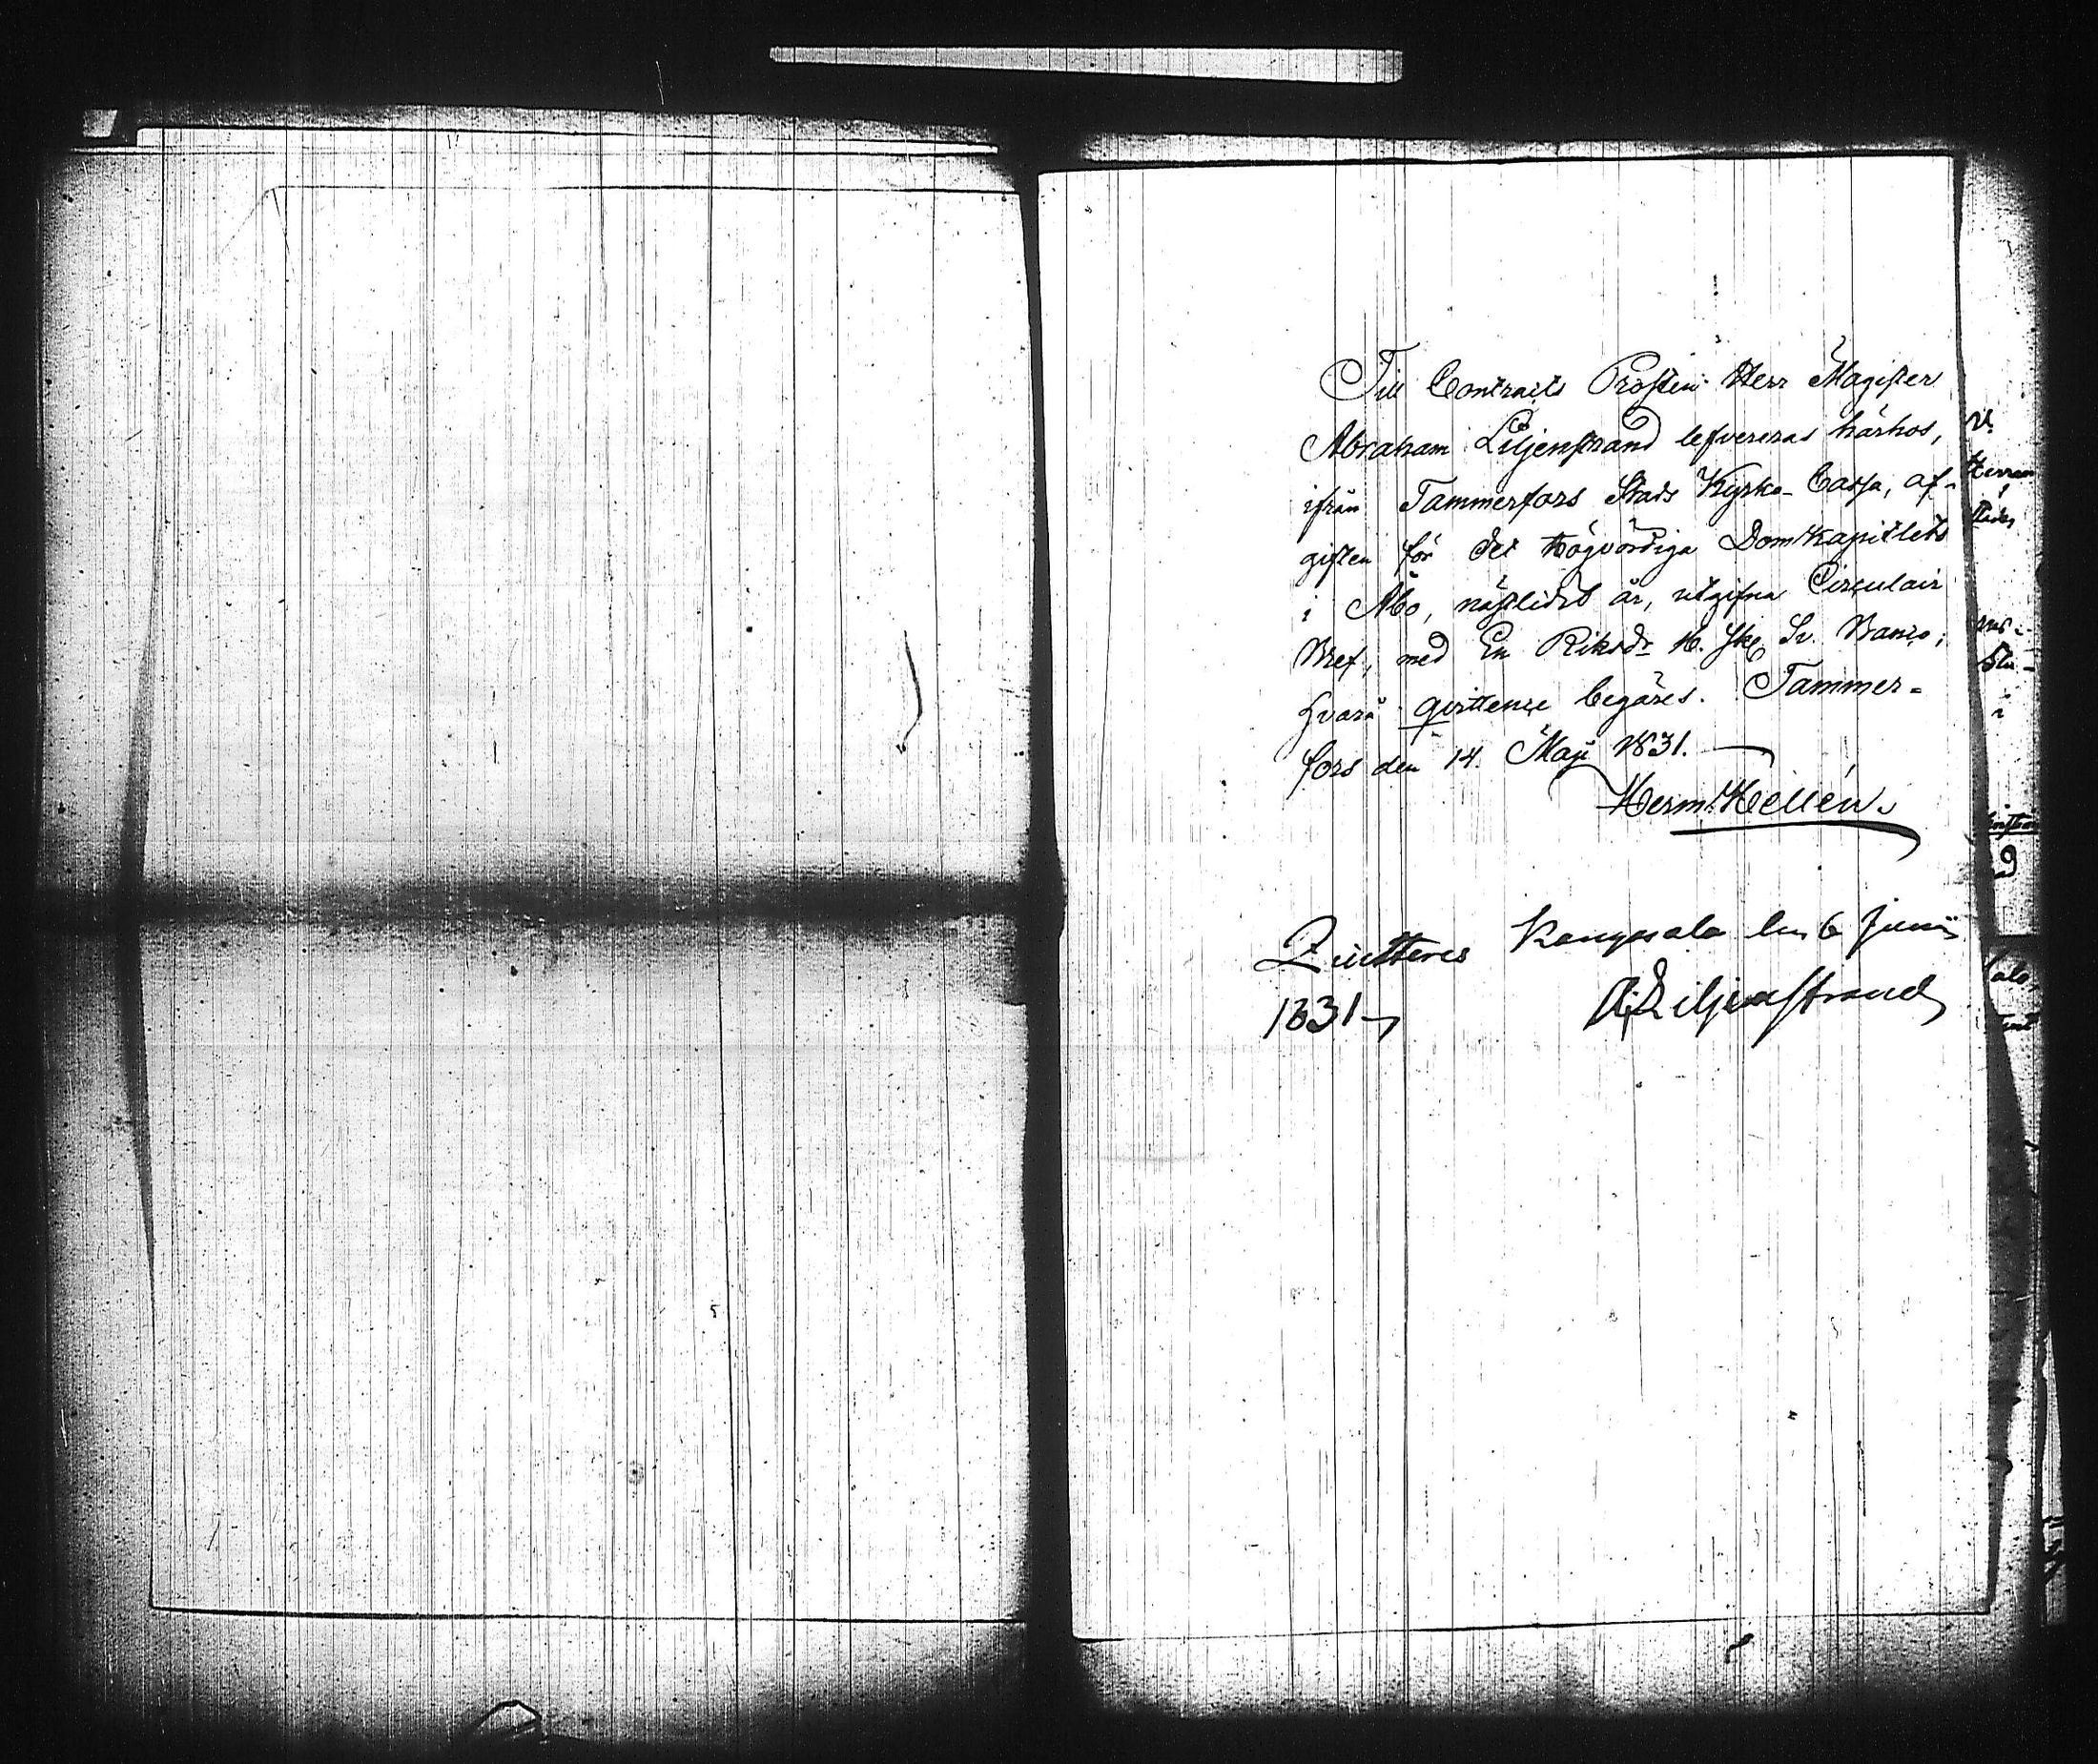 Till Contracts Prosten Herr Magister
Abraham Liljenstrand lefvereras härhos,
ifrån Tammerfors Stads Kyrko-Cassa, af-
giften för det Högvördiga Domkapitlets
i Åbo, nästlidet år, utgifna Circulair
Bref, med En Riksdr Sv. Banco;
hvarå qvittence begäres. Tammer-
fors den 14. Maji 1831.
Herm. Hellén.
Quitteres Kangasala den 6 Junii
1831
A. Liljenstrand